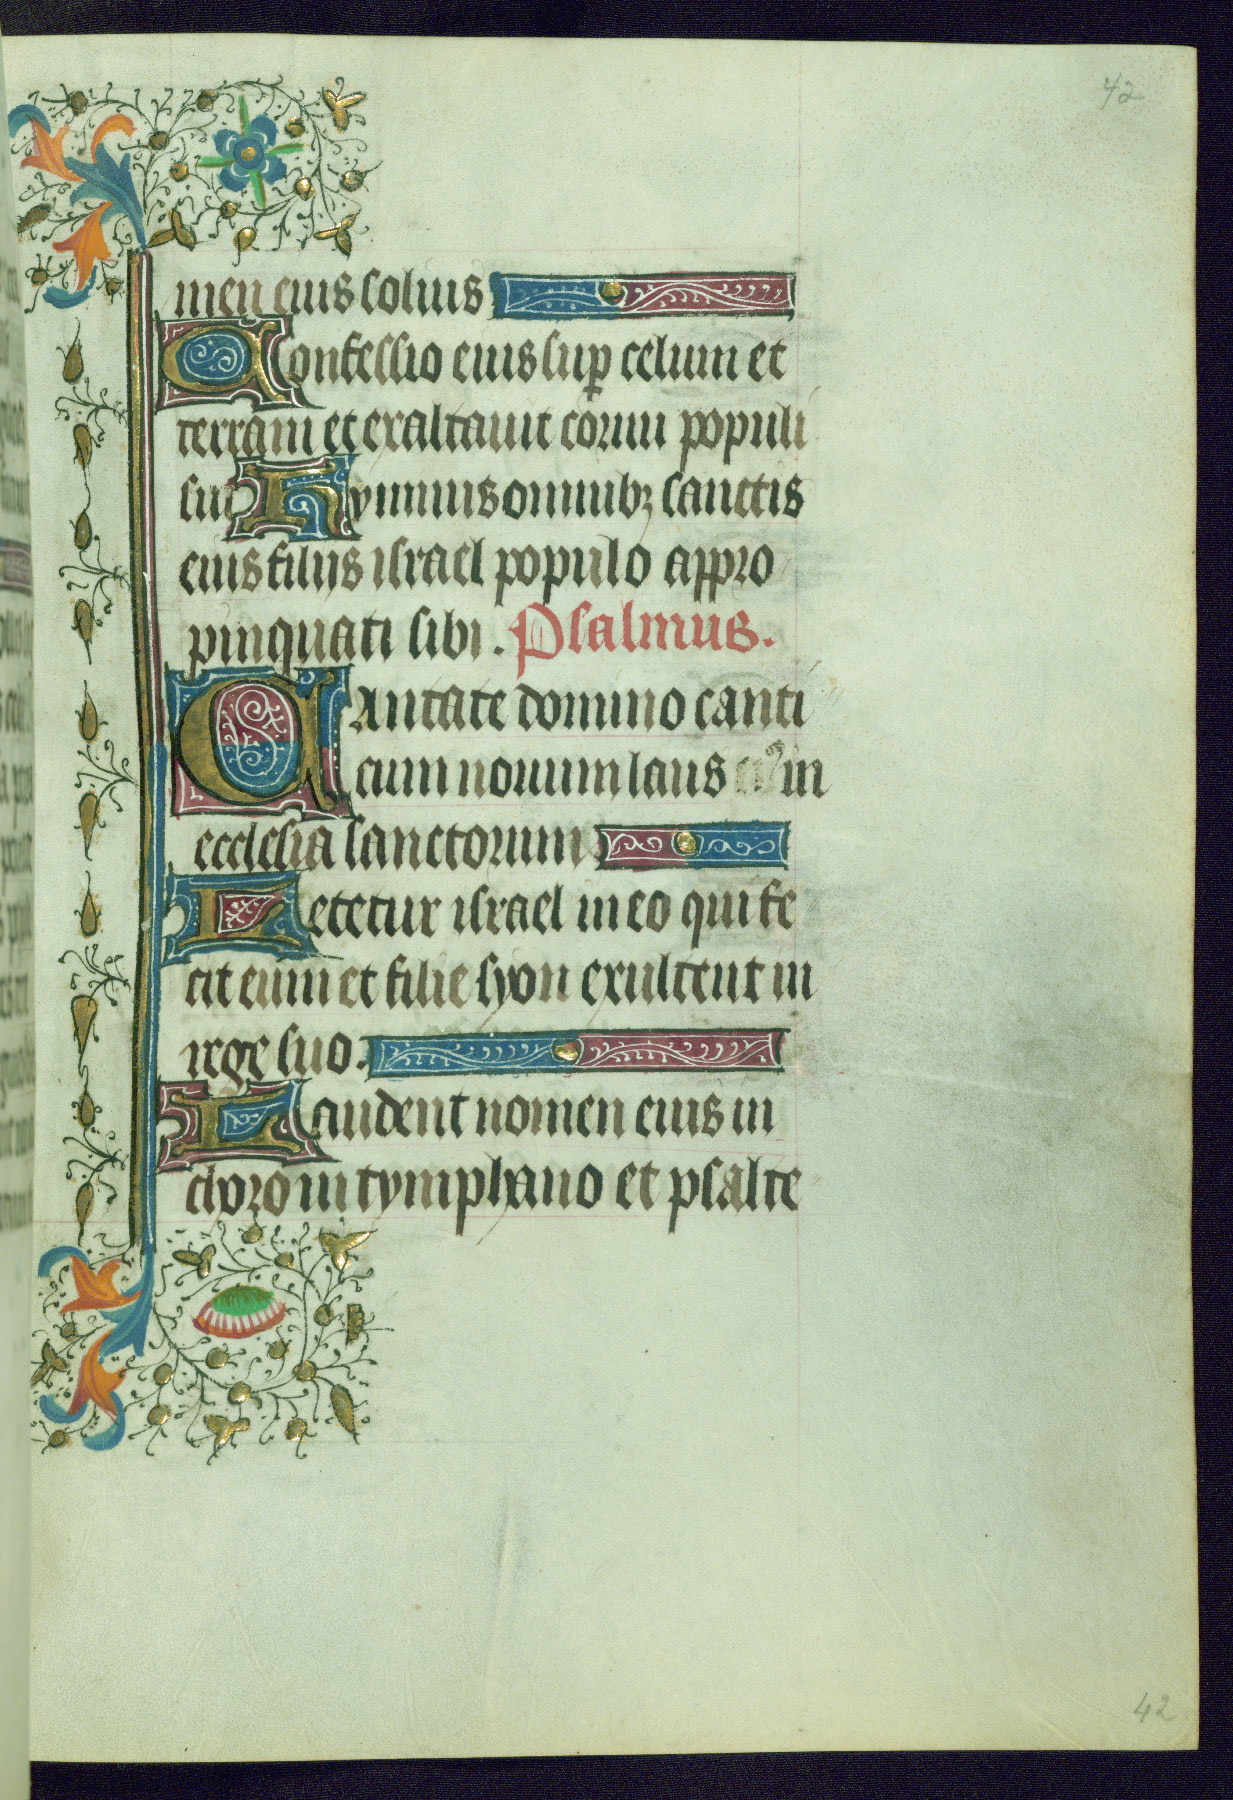 42
men eius solius
Confessio eius sup celum et
terram et exaltauit cornu populi
sui Hymnus omnibꝫ sanctis
eius filijs israel populo appro
pinquati sibi . Psalmus .
CAntate domino canti
cum nouum laus eiꝰ in
ecclesia sanctorum
Letetur israel in eo qui fe
cit eum et filie syon exultent in
rege suo .
Laudent nomen eius in
choro in tymphano et psalte
42